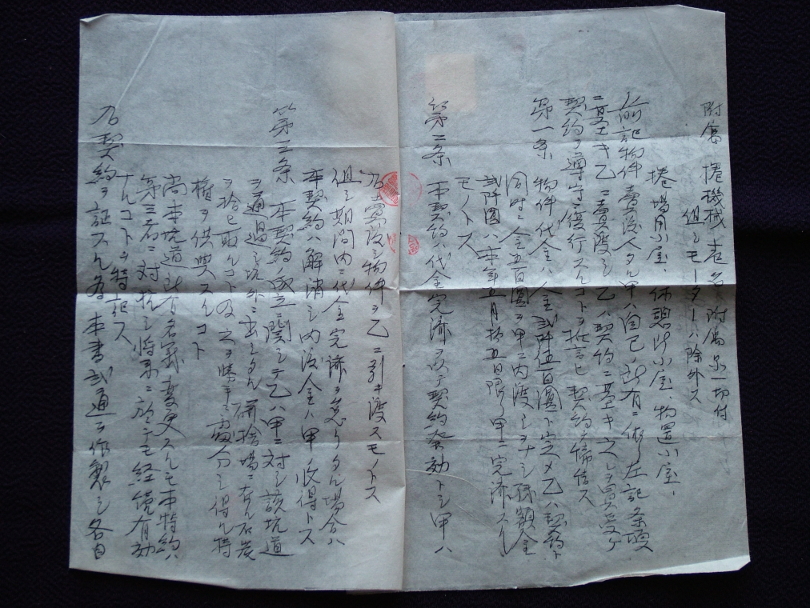 附属 捲機械 壱台 附属品一切付
但シモーターハ除外ス
捲場用小屋、休憩所小屋、物置小屋、
前記物件賣渡人タル甲ハ自己ノ所有ニ係ル左記条項
ニ基キ乙ニ賣渡シ乙ハ契約ニ基キ之レヲ買受ケ
契約ヲ遵守シ履行スルコトヲ 契約ヲ締結ス
第一条 物件代金ハ金弐阡五百圓ト定メ乙ハ契約ト
同時ニ金五百圓ヲ甲ニ内渡シヲナシ残額金
弐阡圓ハ本年五月拾五日限リ甲ニ完済スル
モノトス
第二条 本契約ハ代金完済ヲ以テ契約発効トシ甲ハ
乃賣渡シ物件ヲ乙ニ引キ渡スモノトス
但シ期間内ニ代金完済ヲ怠リタル場合ハ
本契約ハ解消シ内渡金ハ甲収得トス
第三条 本契約ノ成立ニ関シテ乙ハ甲ニ対シ該坑道
ヲ通過シ坑外ニ出シタル 捨場ニ在ル石炭
ヲ拾ヒ取ルコト及之ヲ勝手ニ處分シ得ル特
権ヲ供與スルコト
尚本坑道所有名義変更スルモ本特約ハ
第三者ニ対抗シ将来ニ於テモ経続有効
ナルコトヲ特記ス
右契約ヲ証スル為本書弐通ヲ作製シ各自